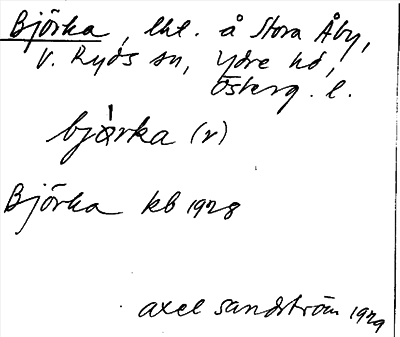 Björka, lht. å Stora Åby,
V. Ryds sn, Ydre hd,
Österg. l.
bjòrka (r)
Björka kb 1928
axel sandström 1929